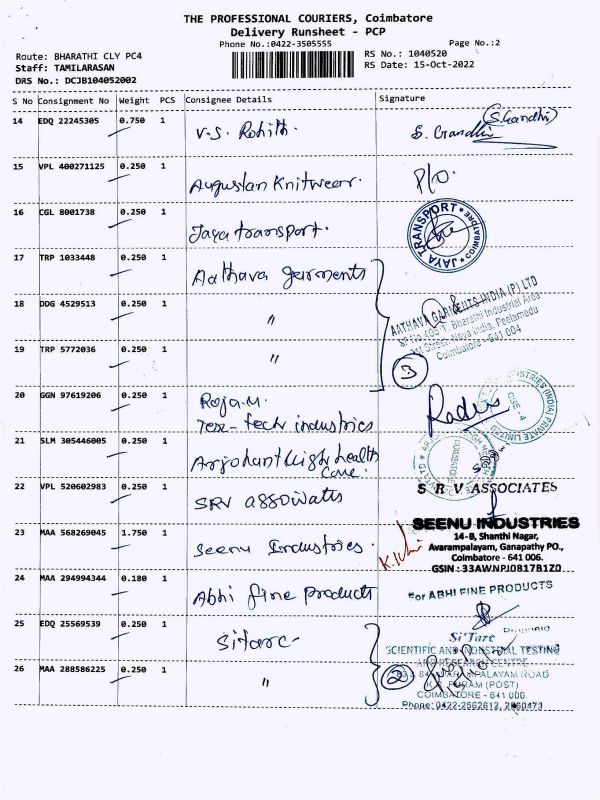 THE PROFESSIONAL COURIERS, Coimbatore
Delivery Runsheet - PCP
Phone No.:0422-3505555
Page No.:2
Route: BHARATHI CLY PC4
RS No.: 1040520
Staff: TAMILARASAN
RS Date: 15-Oct-2022
DRS No.: DCJB104052002
S No Consignment No Weight PCS Consignee Details Signature
14 EDQ 22245305 0.750 1 V.S. Rohith. S. Gandhi (S.Gandhi)
15 VPL 400271125 0.250 1 Augustan Knitwear. P/O.
16 CGL 8001738 0.250 1 Jaya transport. JAYA TRANSPORT COIMBATORE
17 TRP 1033448 0.250 1 Aathava garments
18 DDG 4529513 0.250 1 "
AATHAVA GARMENTS INDIA (P) LTD
Bharathi Industrial Area
Street, Nava India, Peelamedu
Coimbatore - 641 004
19 TRP 5772036 0.250 1 " 3
20 GGN 97619206 0.250 1 Roja.M.
Tex-tech industries
21 SLM 305446005 0.250 1 Arjohuntleigh health
care.
22 VPL 520602983 0.250 1 SRV associates S R V ASSOCIATES
23 MAA 568269045 1.750 1 Seenu Industries.
SEENU INDUSTRIES
14-B, Shanthi Nagar,
Avarampalayam, Ganapathy PO.,
Coimbatore - 641 006.
GSIN : 33AWNPJ0817B1Z0
24 MAA 294994344 0.180 1 Abhi fine products For ABHI FINE PRODUCTS
25 EDQ 25569539 0.250 1 Sitarc-
Si'Tarc
SCIENTIFIC AND INDUSTRIAL TESTING
AND RESEARCH CENTRE
26 MAA 288586225 0.250 1 " 2
COIMBATORE - 641 006.
Phone: 0422-2562612, 2560473